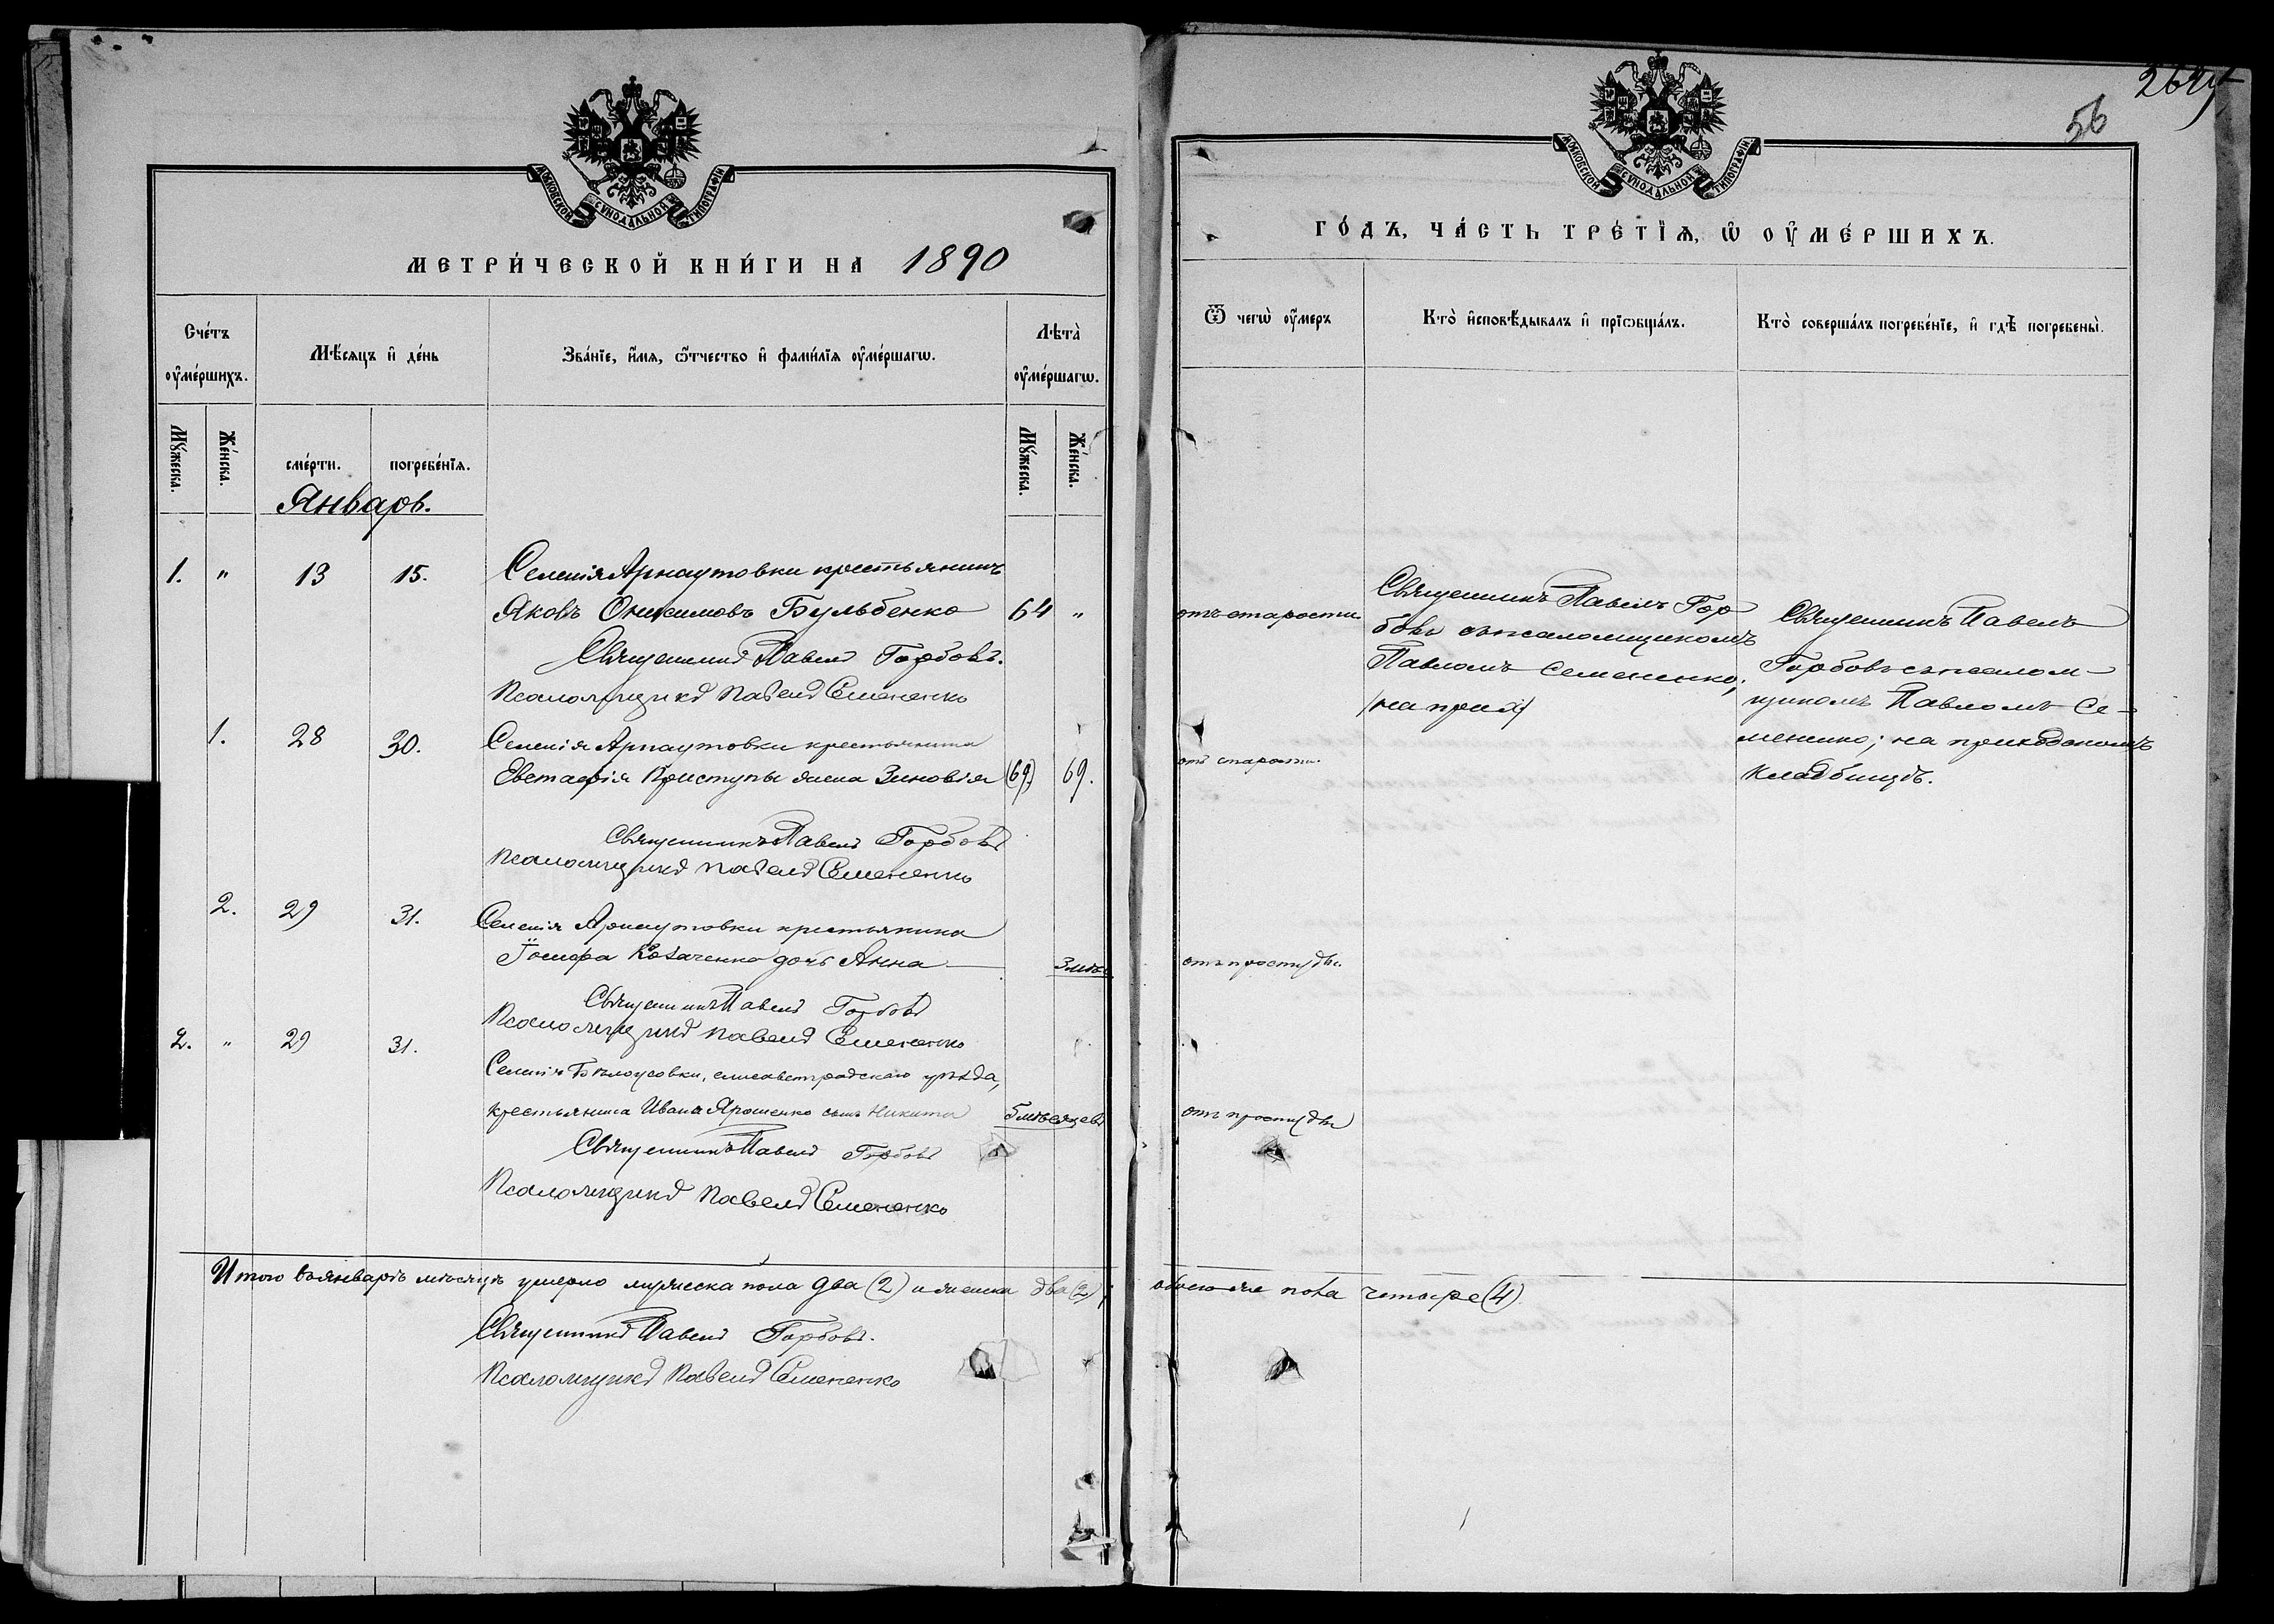 МОСКОВСКОЙ СѴНОДАЛЬНОЙ ТИПОГРАФІИ
МЕТРИ́ЧЕСКОЙ КНИ́ГИ НА 1890
Сче́тъ ᲂу҆ме́ршихъ.
Мѣ́сяцъ и҆ де́нь
Зва́нїе, и҆́мя, ѻ҆́тчество и҆ фами́лїя ᲂу҆ме́ршагѡ.
Лѣта̀ ᲂу҆ме́ршагѡ.
Мꙋ́жеска.
Же́нска.
сме́рти.
погребе́нїя.
Мꙋ́жеска.
Же́нска.
Январь.
1. " 13 15. Селенія Арнаутовки крестьянинъ
Яковъ Онисимовъ Бульбенко 64 "
Священникъ Павелъ Горбовъ.
Псаломщикъ Павелъ Семененко
1. 28 30. Селенія Арнаутовки крестьянина
Евстафія Приступы жена Зиновія (69) 69.
Священникъ Павелъ Горбовъ
Псаломщикъ Павелъ Семененко
2. 29 31. Селенія Арнаутовки крестьянина
Іосифа Козаченко дочь Анна 3 лѣтъ
Священникъ Павелъ Горбовъ
Псаломщикъ Павелъ Семененко
2. " 29 31.
Селенія Бѣлоусовки, елисаветградскаго уѣзда,
крестьянина Ивана Ярошенко сынъ Никита 5 мѣсяцевъ
Священникъ Павелъ Горбовъ
Псаломщикъ Павелъ Семененко
Итого въ январѣ мѣсяцѣ умерло мужеска пола два (2) и женска два (2);
Священникъ Павелъ Горбовъ.
Псаломщикъ Павелъ Семененко
56
МОСКОВСКОЙ СѴНОДАЛЬНОЙ ТИПОГРАФІИ
ГО́ДЪ, ЧА́СТЬ ТРЕ́ТЇѦ, Ѡ҆ ОУ҆МЕ́РШИХЪ.
Ѿ чегѡ̀ ᲂу҆́меръ
Кто̀ и҆сповѣ́дывалъ и҆ прїѡбща́лъ.
Кто̀ соверша́лъ погребе́нїе, и҆ гдѣ̀ погребены̀.
отъ старости
Священникъ Павелъ Гор
бовъ съ псаломщикомъ
Павломъ Семененко;
Священникъ Павелъ
Горбовъ съ псалом-
щикомъ Павломъ Се-
мененко; на приходскомъ
кладбищѣ.
отъ старости.
отъ простуды.
отъ простуды
обоего же пола четыре (4)